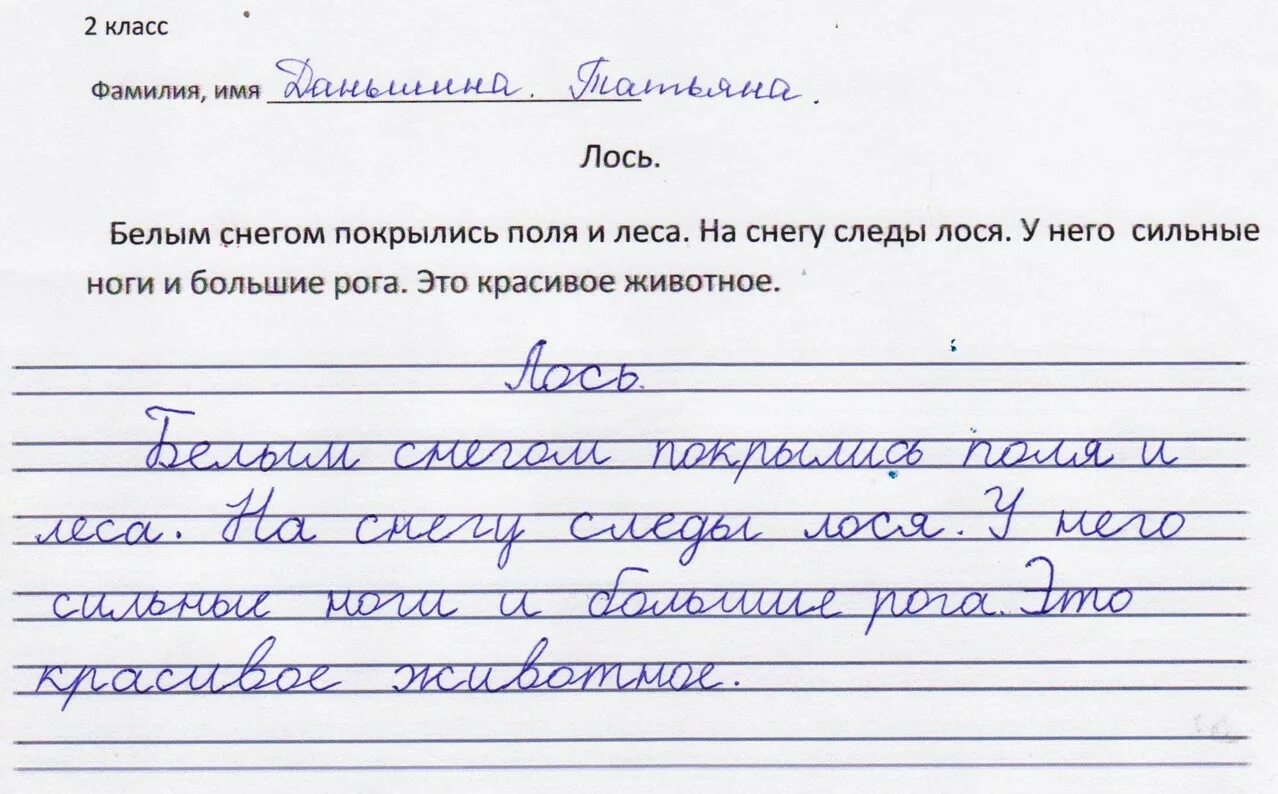 2 класс
Фамилия, имя Даньшина. Татьяна.
Лось.
Белым снегом покрылись поля и леса. На снегу следы лося. У него сильные
ноги и большие рога. Это красивое животное.
Лось.
Белым снегом покрылись поля и
леса. На снегу следы лося. У него
сильные ноги и большие рога. Это
красивое животное.